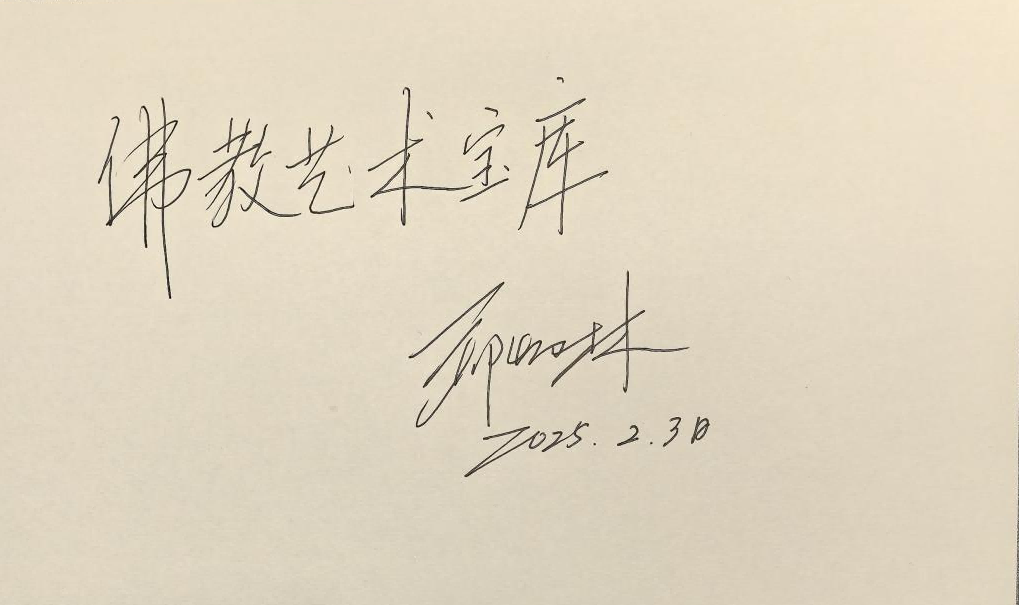 佛教艺术宝库
2025.2.3日